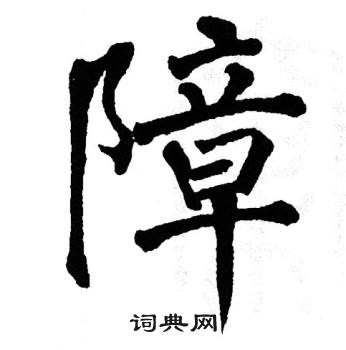 障
词典网